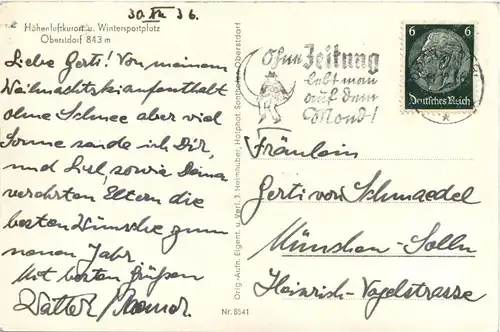 30. XII 36.
Höhenluftkurort u. Wintersportplatz
Oberstdorf 843 m
Liebe Gerti! Von meinem
Weihnachtsskiaufenthalt
ohne Schnee aber viel
Sonne sende ich Dir,
und Lisl, sowie Deinen
verehrten Eltern die
besten Wünsche zum
neuen Jahr
Mit besten Grüßen
Orig.-Aufn. Eigent. u. Verl. J. Heimhuber, Hofphot. Sonthofen-Oberstdorf
Nr. 8541
Ohne Zeitung
lebt man
auf dem
Mond!
6 6
Deutsches Reich
Fräulein
Gerti von Schmaedel
München-Solln
Heinrich-Vogelstrasse